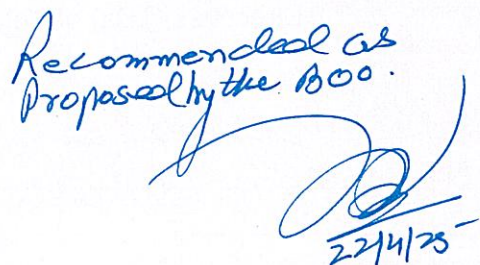 Recommended as
Proposed by the BOO.
22/4/25